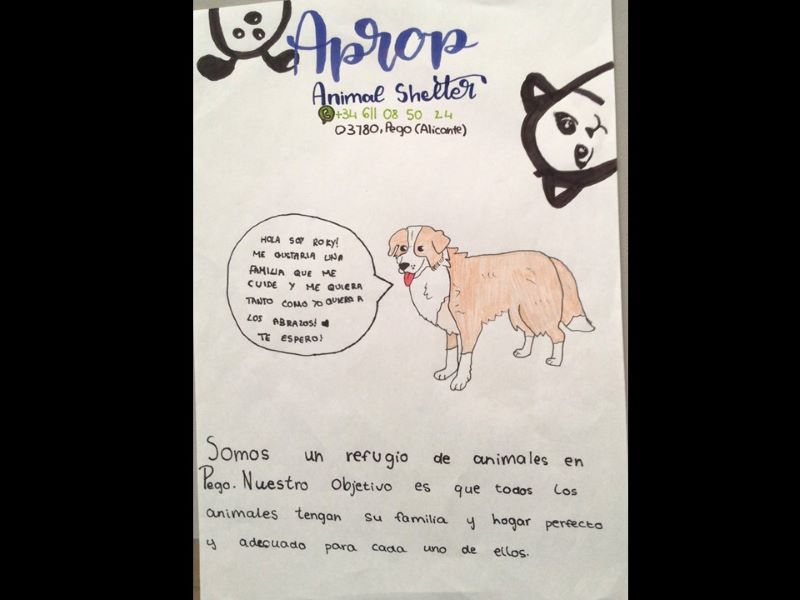 Aprop
Animal Shelter
+34 611 08 50 24
03780, Pego (Alicante)
HOLA SOY ROKY!
ME GUSTARIA UNA
FAMILIA QUE ME
CUIDE Y ME QUIERA
TANTO COMO YO QUIERO A
LOS ABRAZOS!
TE ESPERO!
Somos un refugio de animales en
Pego. Nuestro Objetivo es que todos los
animales tengan su familia y hogar perfecto
y adecuado para cada uno de ellos.